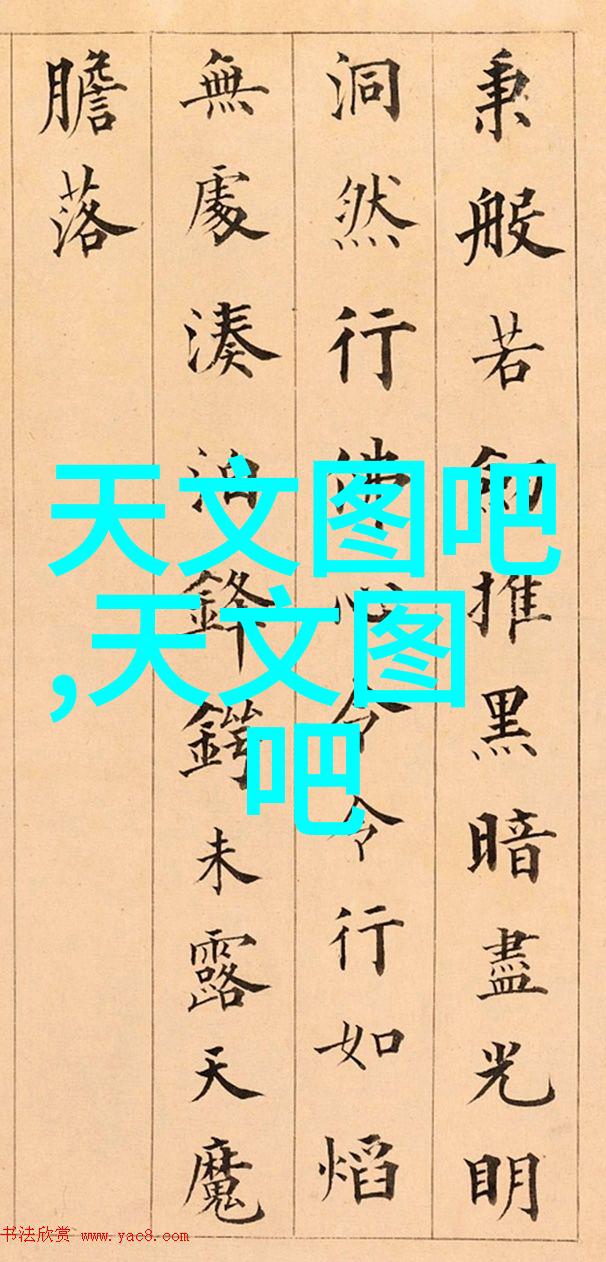 秉般若推黑暗盡光明
洞然行佛心令令行如熖
無處湊泊鋒鍔未露天魔
膽落
天文图吧
,天文图
吧
书法欣赏 www.yac8.com